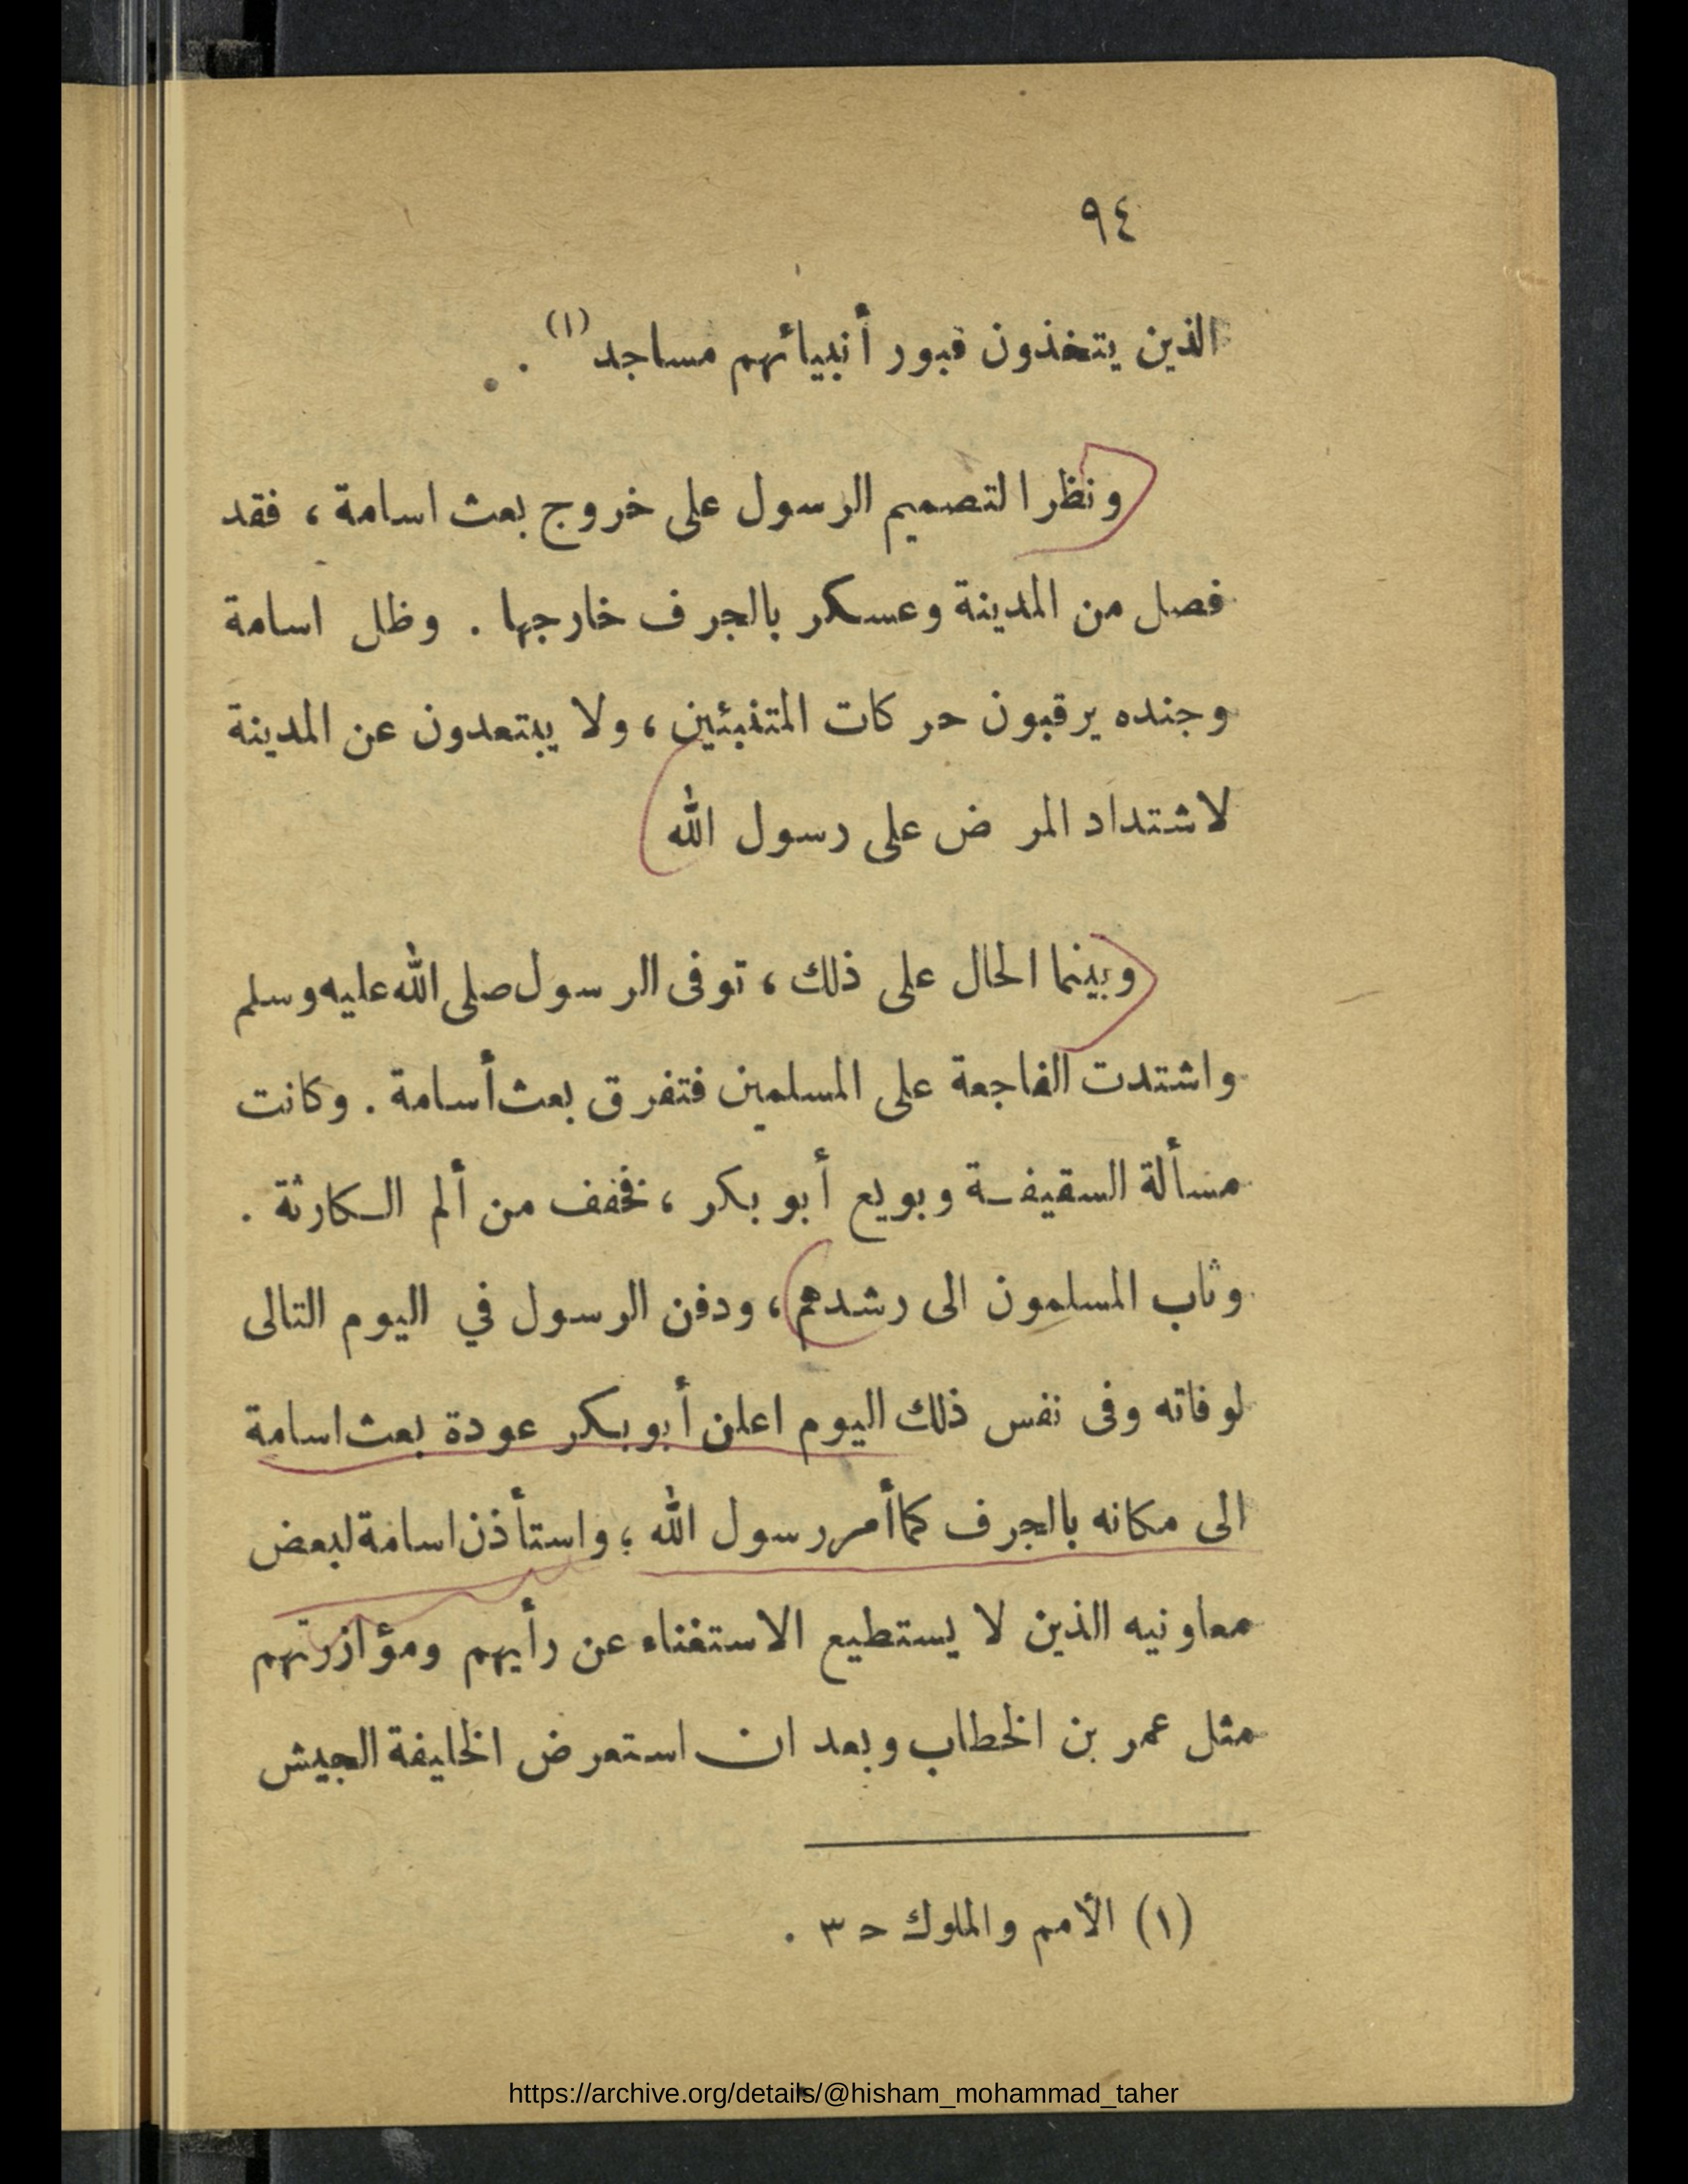 ٩٤
الذين يتخذون قبور أنبيائهم مساجد (١) .
ونظرا لتصميم الرسول على خروج بعث اسامة ، فقد
فصل من المدينة وعسكر بالجرف خارجها . وظل اسامة
وجنده يرقبون حركات المتنبئين ، ولا يبتعدون عن المدينة
لاشتداد المرض على رسول الله
وبينما الحال على ذلك ، توفى الرسول صلى الله عليه وسلم
واشتدت الفاجعة على المسلمين فتفرق بعث أسامة . وكانت
مسألة السقيفة وبويع أبو بكر ، فخفف من ألم الكارثة .
وثاب المسلمون الى رشدهم ، ودفن الرسول في اليوم التالى
لوفاته وفى نفس ذلك اليوم اعلن أبو بكر عودة بعث اسامة
الى مكانه بالجرف كما أمر رسول الله ؛ واستأذن اسامة لبعض
معاونيه الذين لا يستطيع الاستغناء عن رأيهم ومؤازرتهم
مثل عمر بن الخطاب وبعد ان استعرض الخليفة الجيش
(١) الأمم والملوك ح ٣ .
https://archive.org/details/@hisham_mohammad_taher